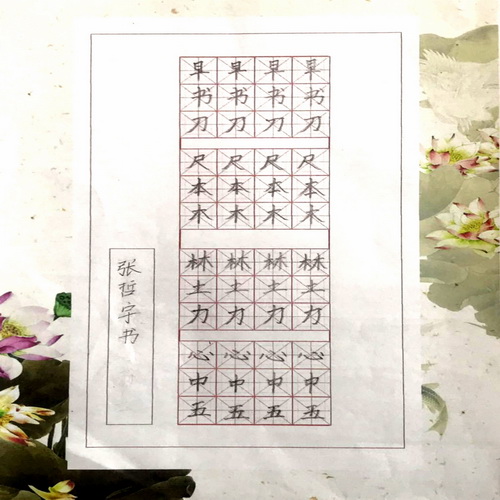 早早早早
书书书书
刀刀刀刀
尺尺尺尺
本本本本
木木木木
林林林林
土土土土
力力力力
心心心心
中中中中
五五五五
张哲字书